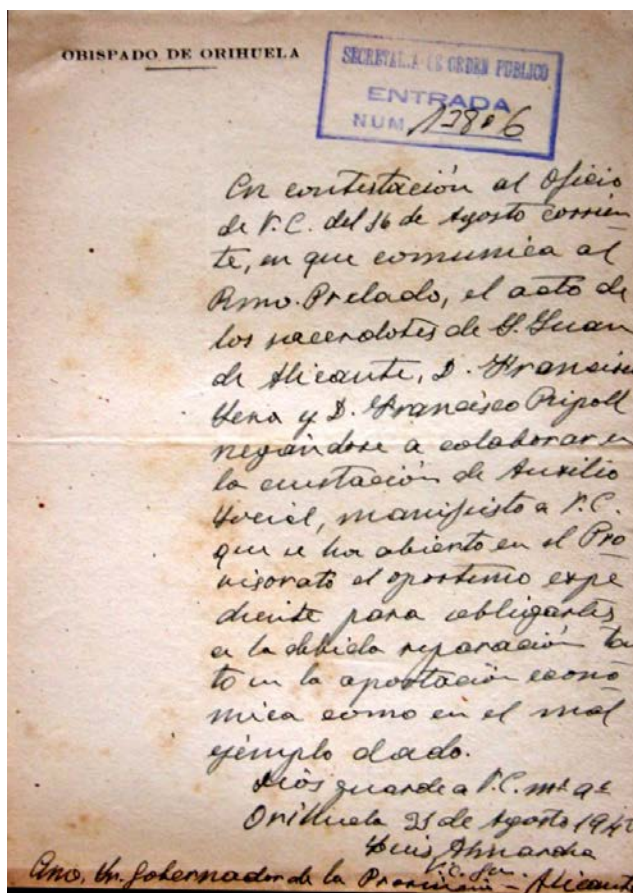 OBISPADO DE ORIHUELA
SECRETARIA DE ORDEN PUBLICO
ENTRADA
NUM 13806
En contestación al Oficio
de V.E. del 16 de Agosto corrien
te, en que comunica al
Rmo. Prelado, el acto de
los sacerdotes de S. Juan
de Alicante, D. Francisco
Vera y D. Francisco Ripoll
negándose a colaborar en
la cuestación de Auxilio
Social, manifiesto a V.E.
que se ha abierto en el Pro
visorato el oportuno expe
diente para obligarles
a la debida reparación tan
to en la aportación econó
mica como en el mal
ejemplo dado.
Dios guarde a V.E. ms. as.
Orihuela 21 de Agosto
Luis Almarcha
V.C. Gen.
Exmo. Sr. Gobernador de la Provincia. Alicante